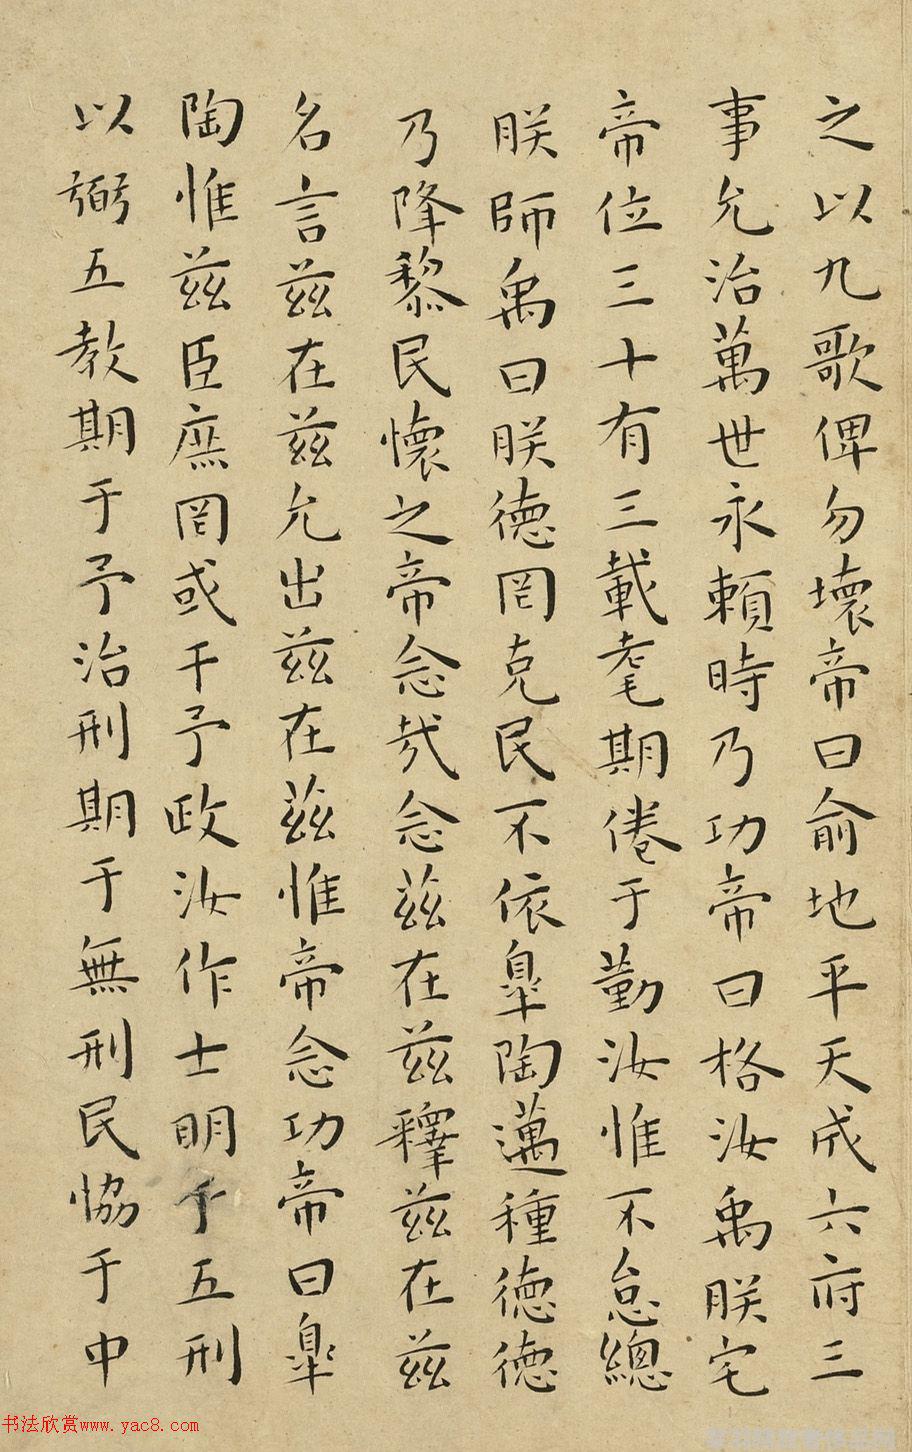 之以九歌俾勿壞帝曰俞地平天成六府三
事允治萬世永賴時乃功帝曰格汝禹朕宅
帝位三十有三載耄期倦于勤汝惟不怠總
朕師禹曰朕德罔克民不依皐陶邁種德德
乃降黎民懷之帝念哉念茲在茲釋茲在茲
名言茲在茲允出茲在茲惟帝念功帝曰皐
陶惟茲臣庶罔或干予政汝作士明于五刑
以弼五教期于予治刑期于無刑民協于中
书法欣赏www.yac8.com